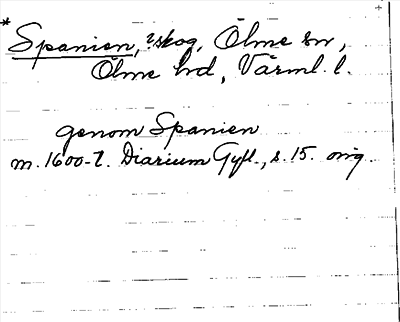 *
Spanien, ?skog, Ölme sn,
Ölme hd, Värml. l.
genom Spanien
m. 1600-t. Diarium Gyll., s. 15. orig.